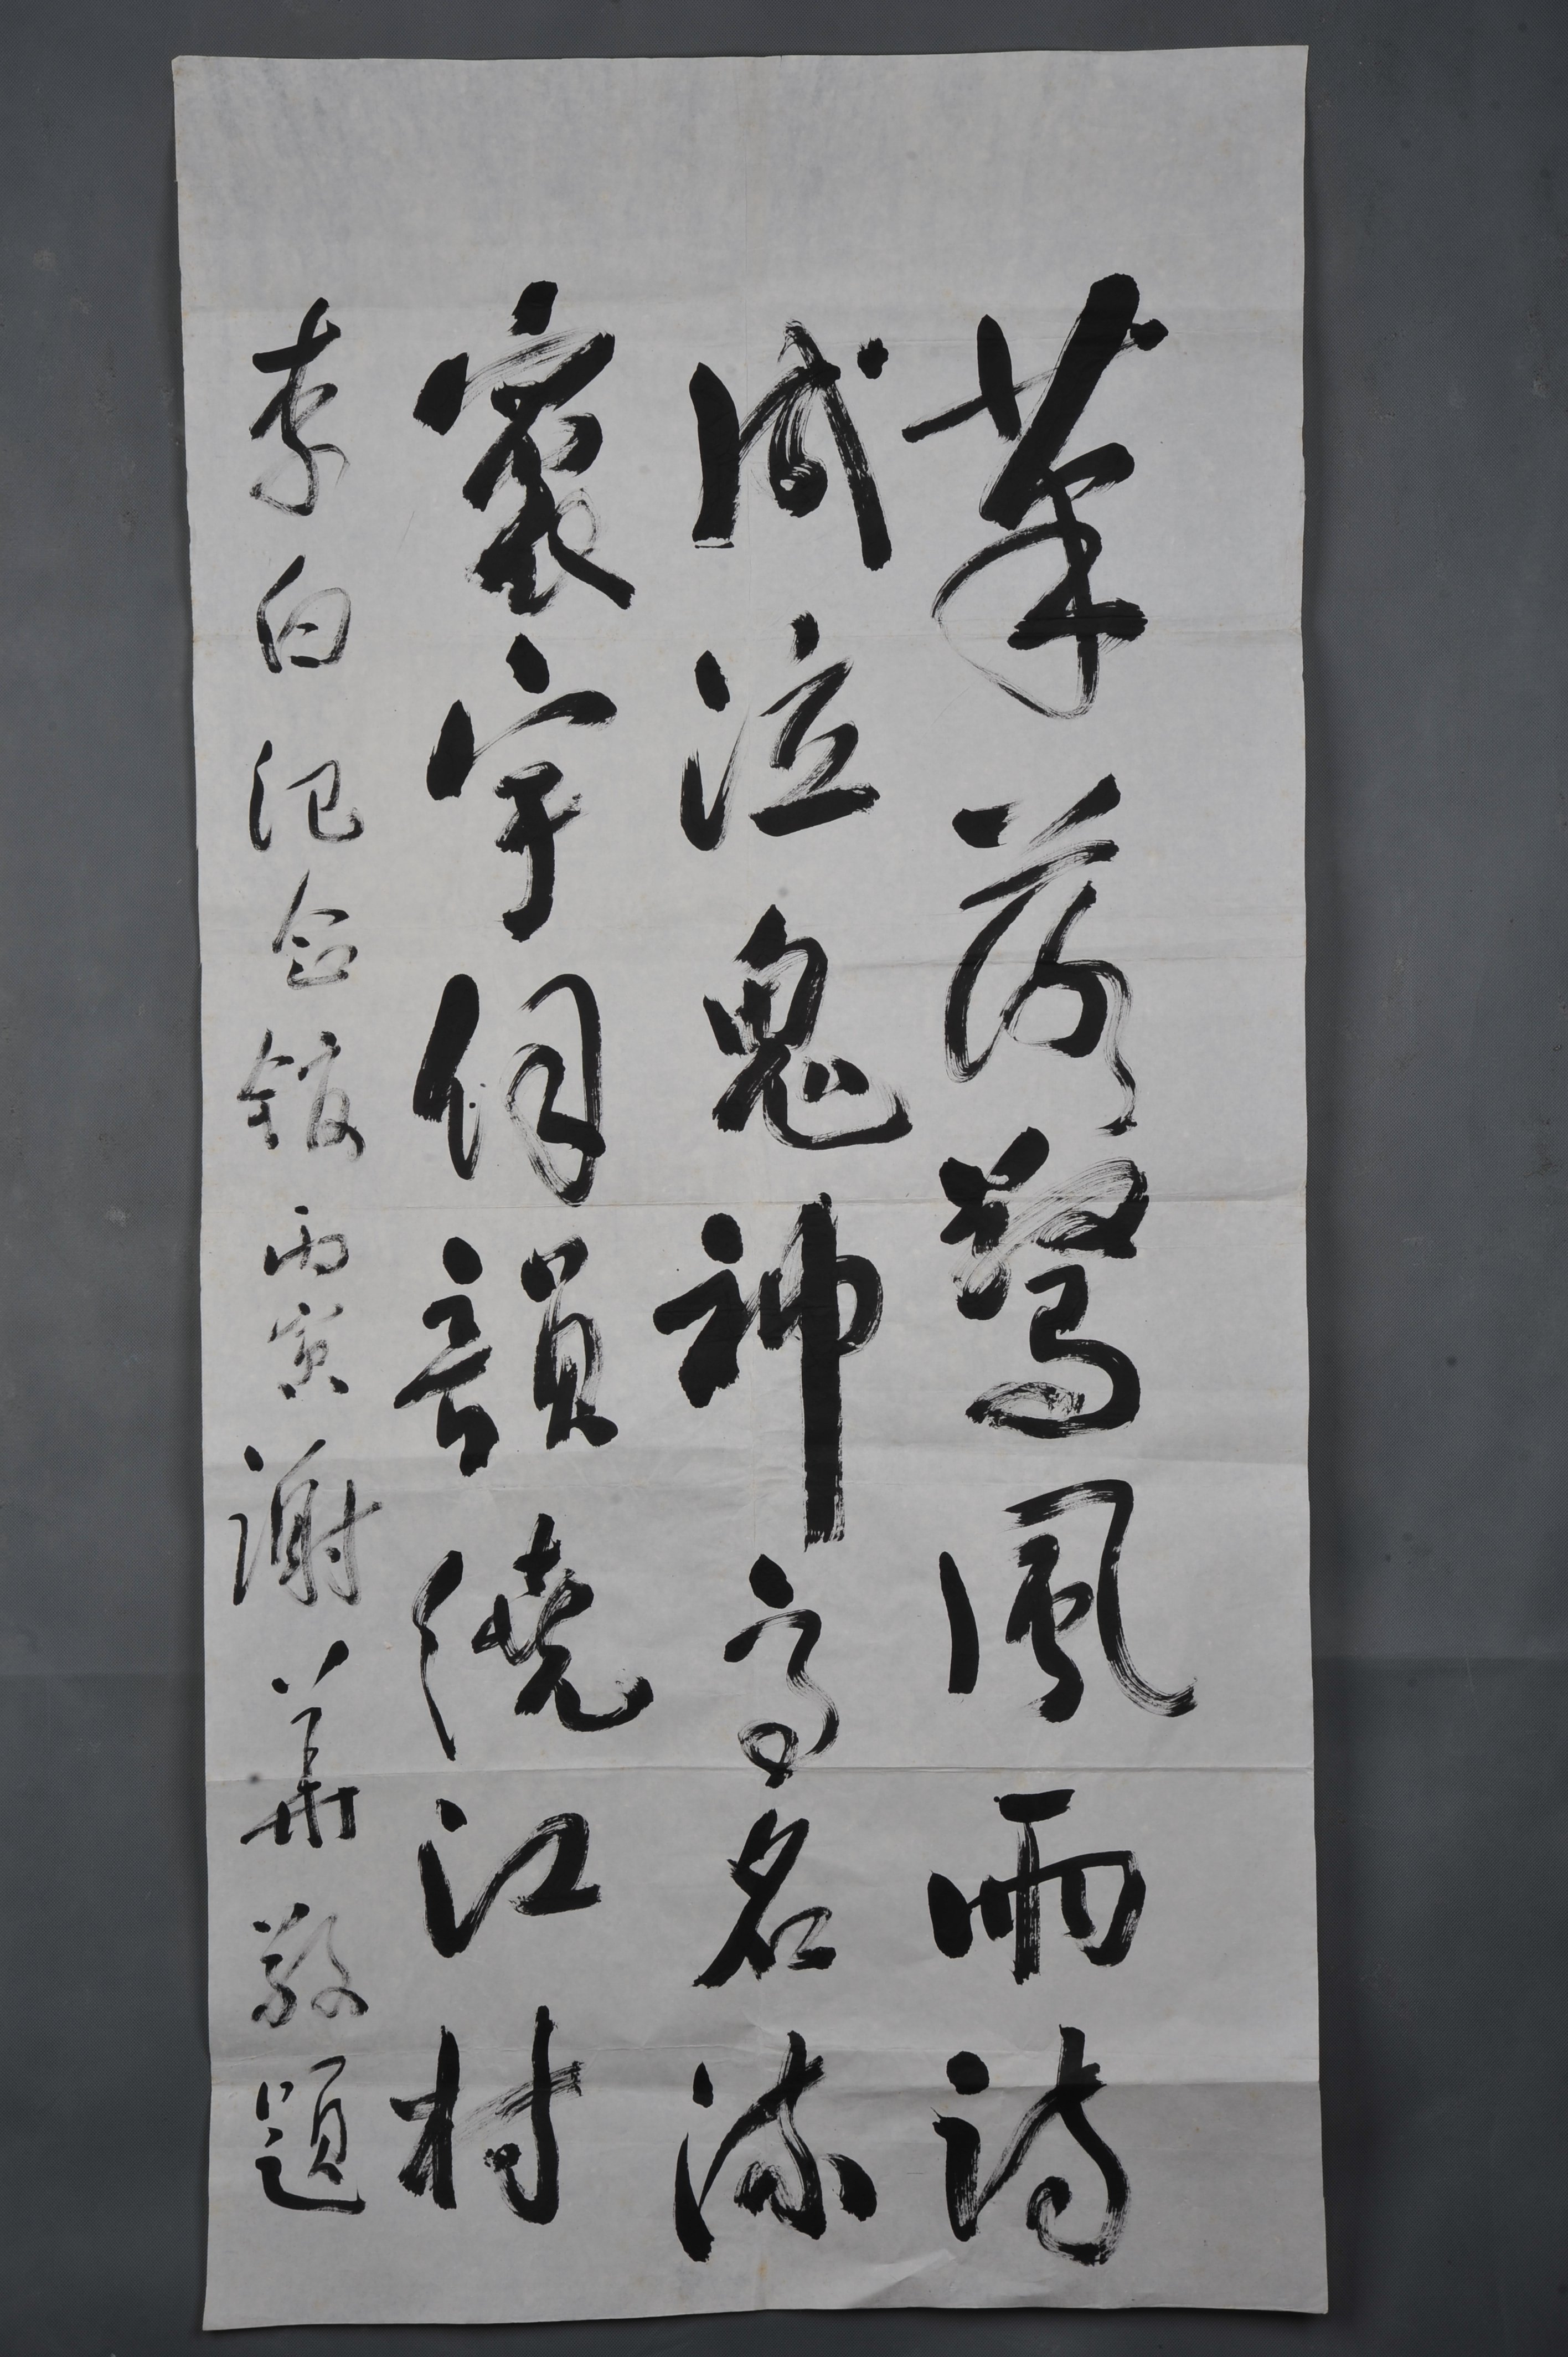 筆落驚風雨詩
成泣鬼神高名流
寰宇韻繞江村
李白紀念館丙寅謝華敬題